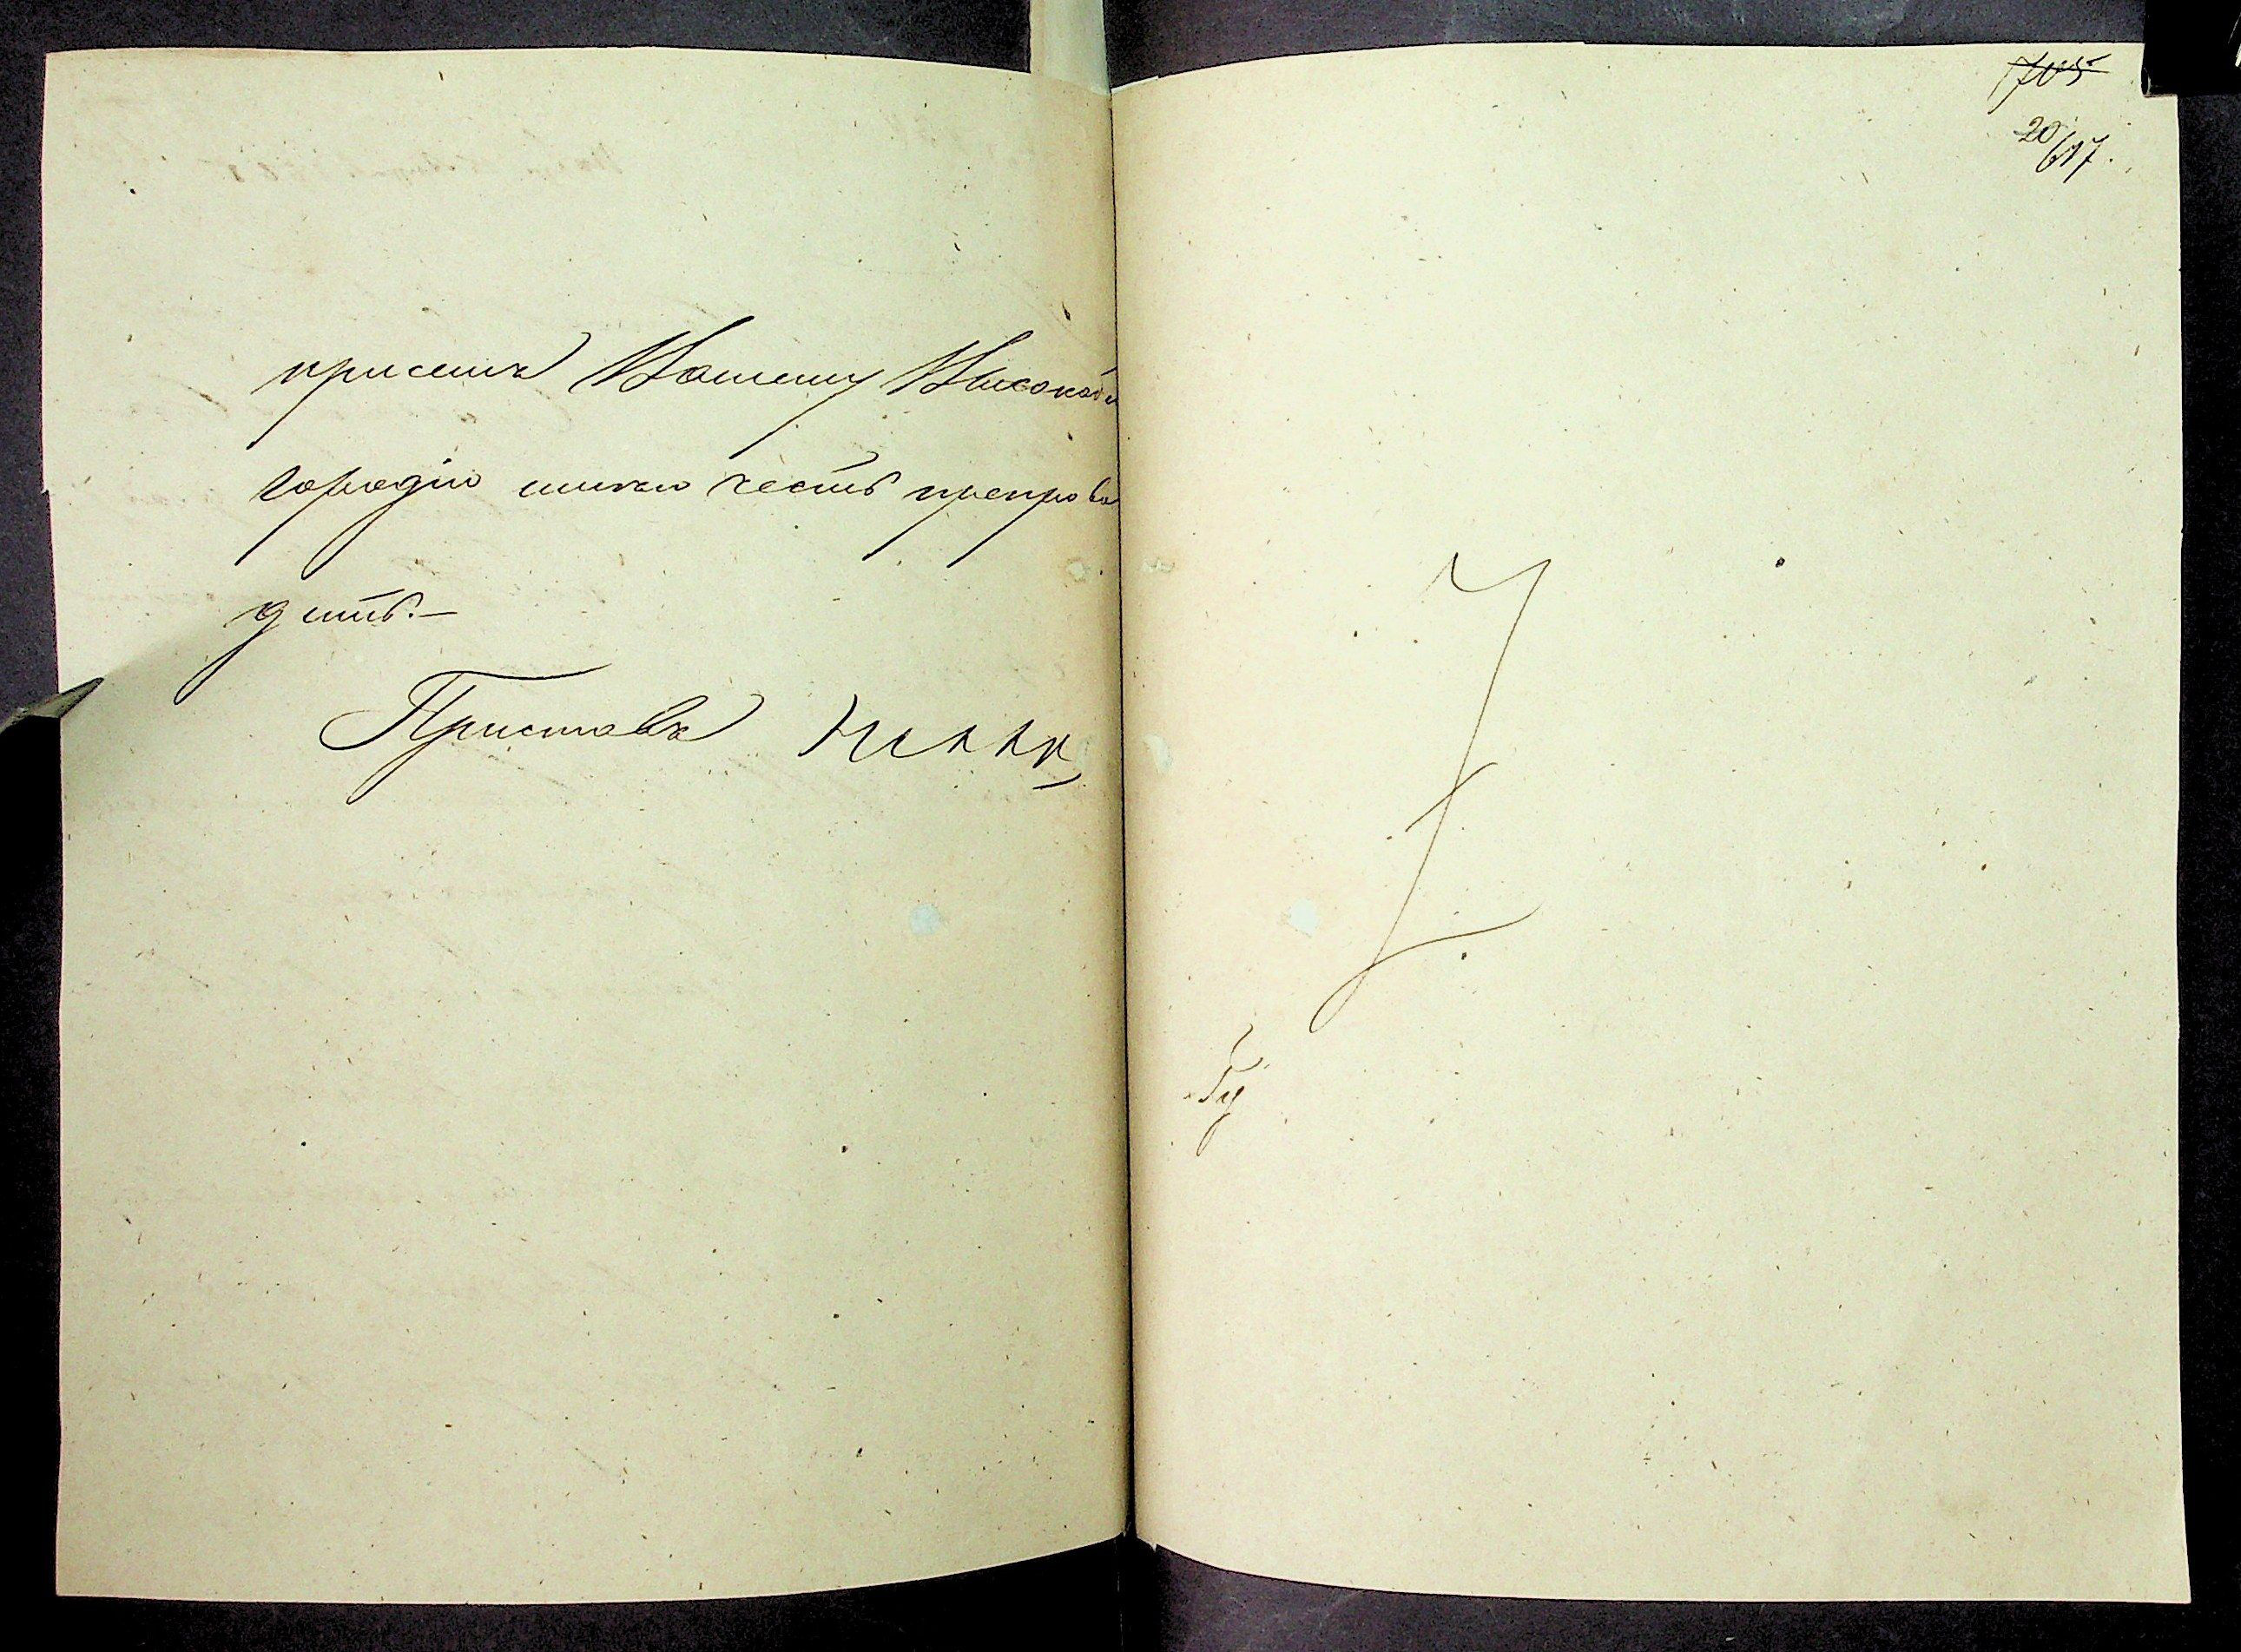 при семъ Вашему Высокобла
городію имѣю честь препрово
дить.-
Приставъ
705
20
617.